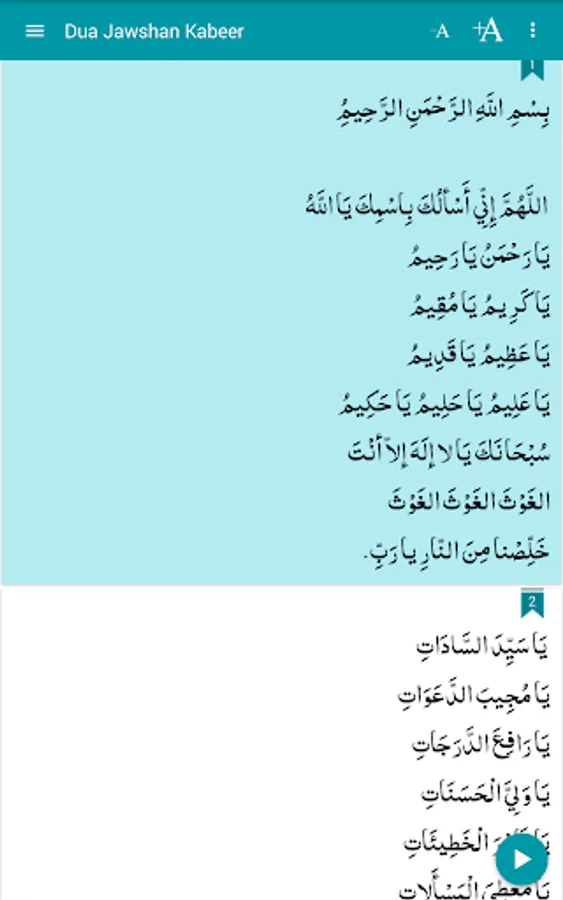 Dua Jawshan Kabeer
-A
+A
1
بِسْمِ اللَّهِ الرَّحْمَنِ الرَّحِيمُِ
اللَّهُمَّ إِنِّي أَسْأَلُكَ بِاسْمِكَ يَا اللَّهُ
يَا رَحْمَنُ يَا رَحِيمُ
يَا كَرِيمُ يَا مُقِيمُ
يَا عَظِيمُ يَا قَدِيمُ
يَا عَلِيمُ يَا حَلِيمُ يَا حَكِيمُ
سُبْحَانَكَ يَا لا إِلَهَ إِلاّ أَنْتَ
الغَوْثَ الغَوْثَ الغَوْثَ
خَلِّصْنا مِنَ النّارِ يا رَبِّ.
2
يَا سَيِّدَ السَّادَاتِ
يَا مُجِيبَ الدَّعَوَاتِ
يَا رَافِعَ الدَّرَجَاتِ
يَا وَلِيَّ الْحَسَنَاتِ
يَا الْخَطِيئَاتِ
يَا مُعْطِيَ الْمَسْأَلاتِ